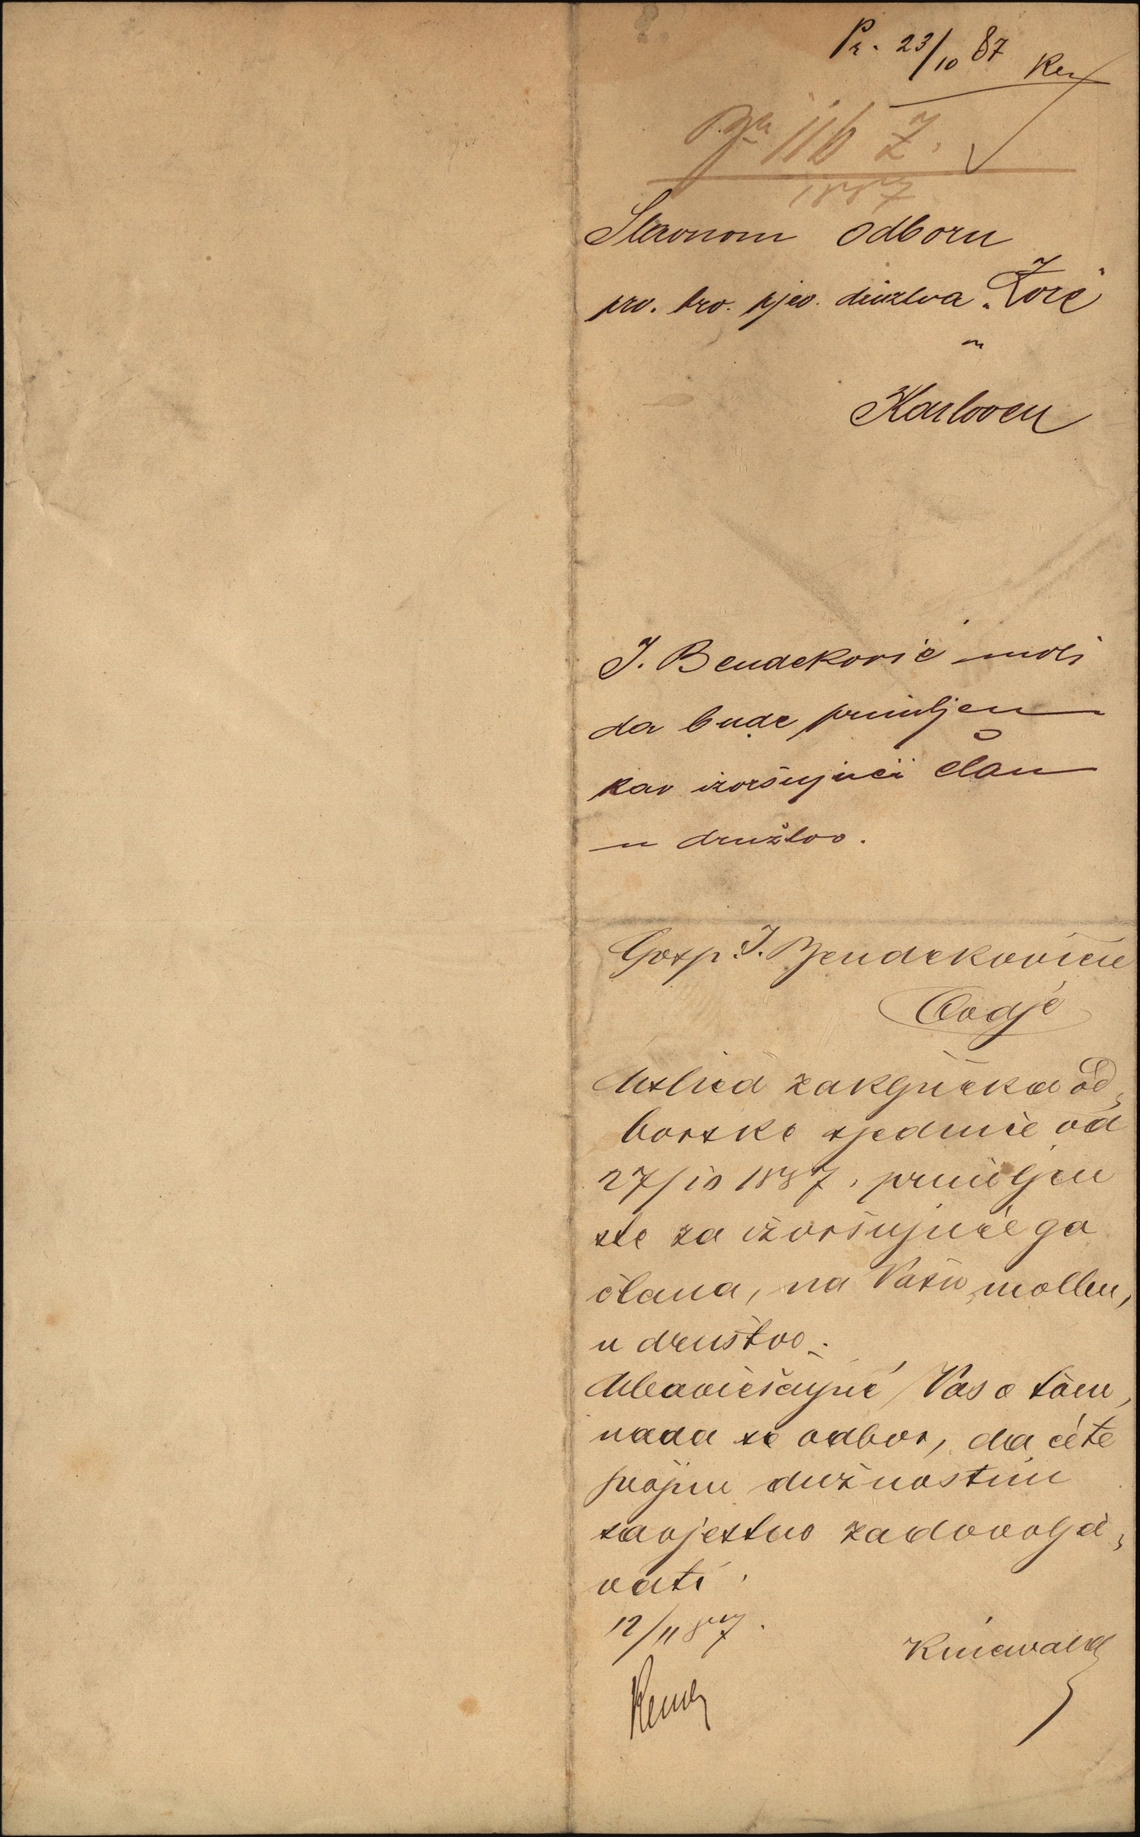 Pr. 23/10 87
116 Z.
1887
Slavnom odboru
prv. hrv. pjev. družtva „Zore"
u
Karlovcu
J. Bendeković moli
da bude primljen
kao izvršujući član
u družtvo.
Gosp. J. Bendekoviću
Ovdje
Uslied zaključka od-
borske sjednice od
27/10 1887. primljen
ste za izvršujućega
člana, na Vašu molbu,
u društvo.
Obaviešćujuć Vas o tom,
nada se odbor, da ćete
svojim dužnostim
savjestno zadovolja-
vati.
12/11 87.